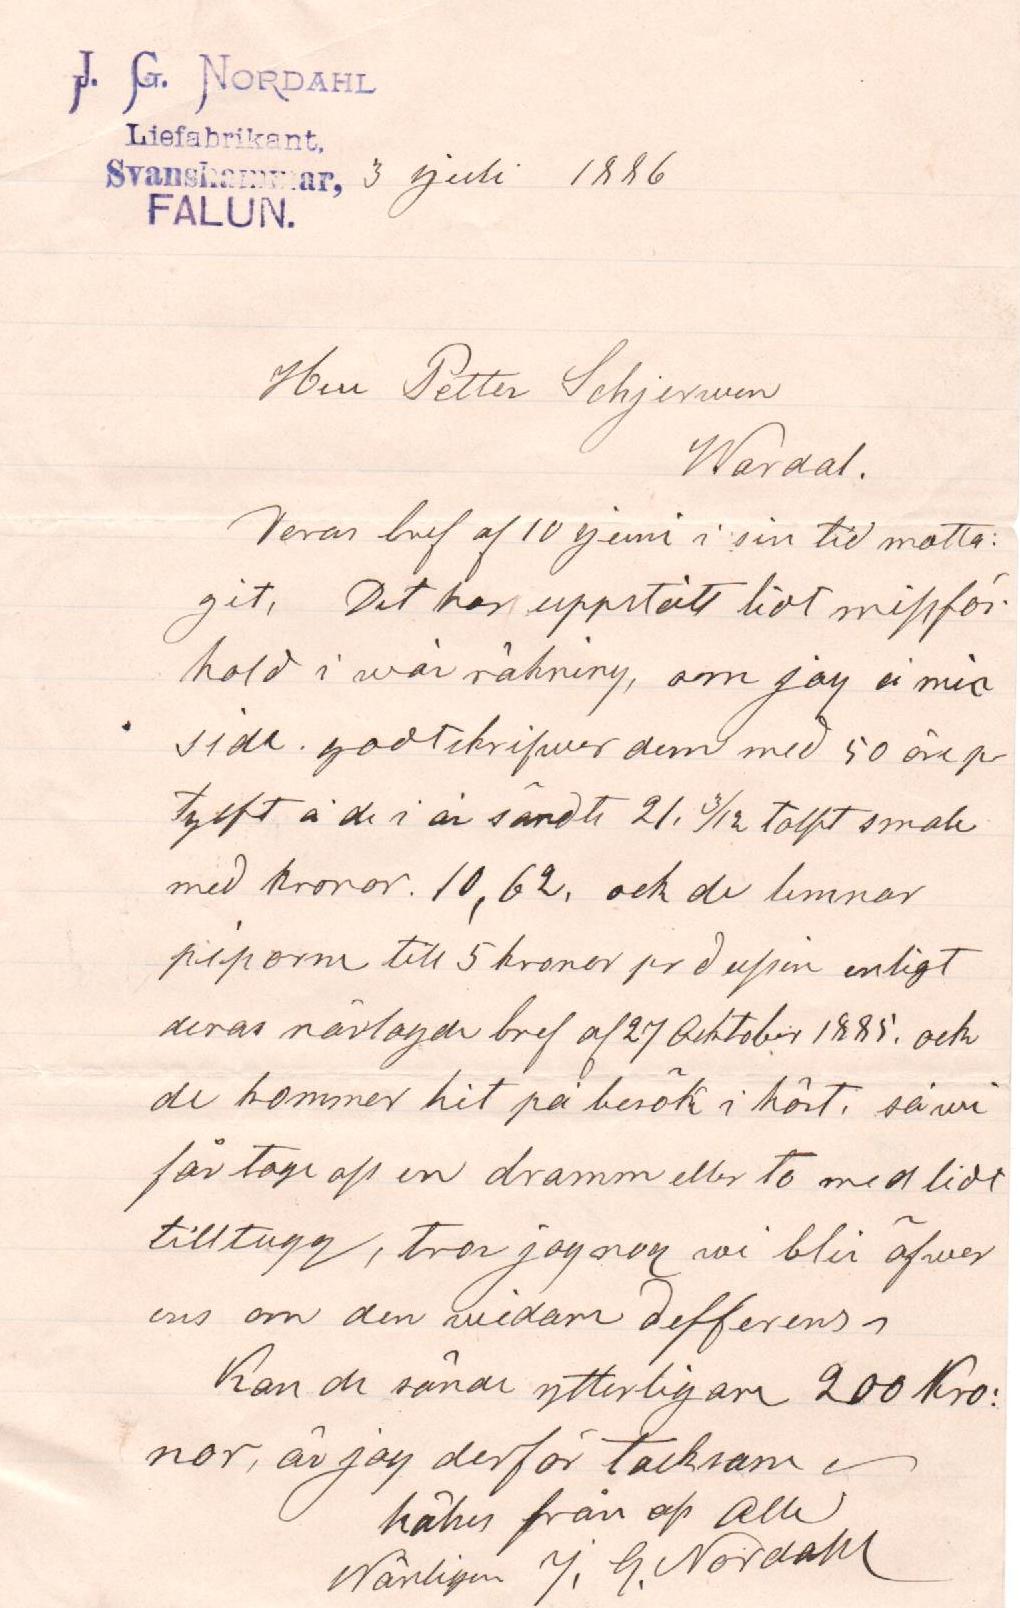 J. G. NORDAHL
Liefabrikant,
Svanshammar,
FALUN.
3 Juli 1886
Herr Petter Schjerwen
Wardal.
Deras bref af 10 Juni i sin tid motta:
git, Det har uppstått lidt missför-
hold i wår räkning, som jag å min
sida. godtskrifwer dem med 50 öre pr
tylft å de i år sändte 21. 3/12 tolft smale
med kronor. 10,62. och de lemnar
piporne till 5 kroner pr dussin enligt
deras närlagde bref af 27 Oktober 1885. och
de kommer hit på besök i höst. så wi
får tage oss en dramm eller to med lidt
tilltugg, tror jag nog wi blir öfwer
ens om den widare defferens
Kan de sände ytterligare 200 Kro:
nor, är jag derför tacksam
hälses från oss Alle
Wänligen J. G. Nordahl